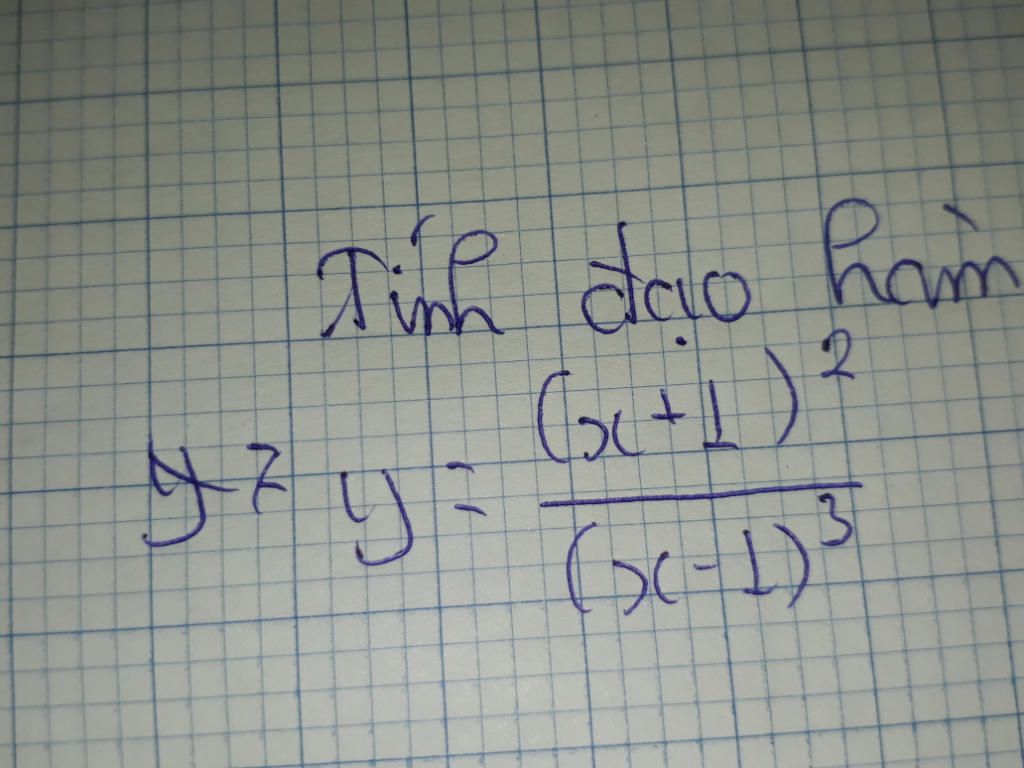 Tính đạo hàm
y = \frac{(x+1)^2}{(x-1)^3}